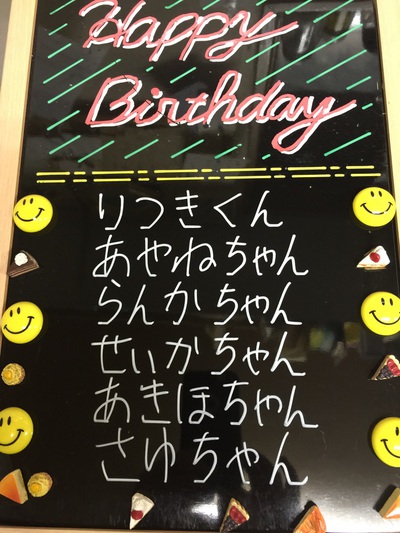 Happy
Birthday
りつきくん
あやねちゃん
らんかちゃん
せいかちゃん
あきほちゃん
さゆちゃん